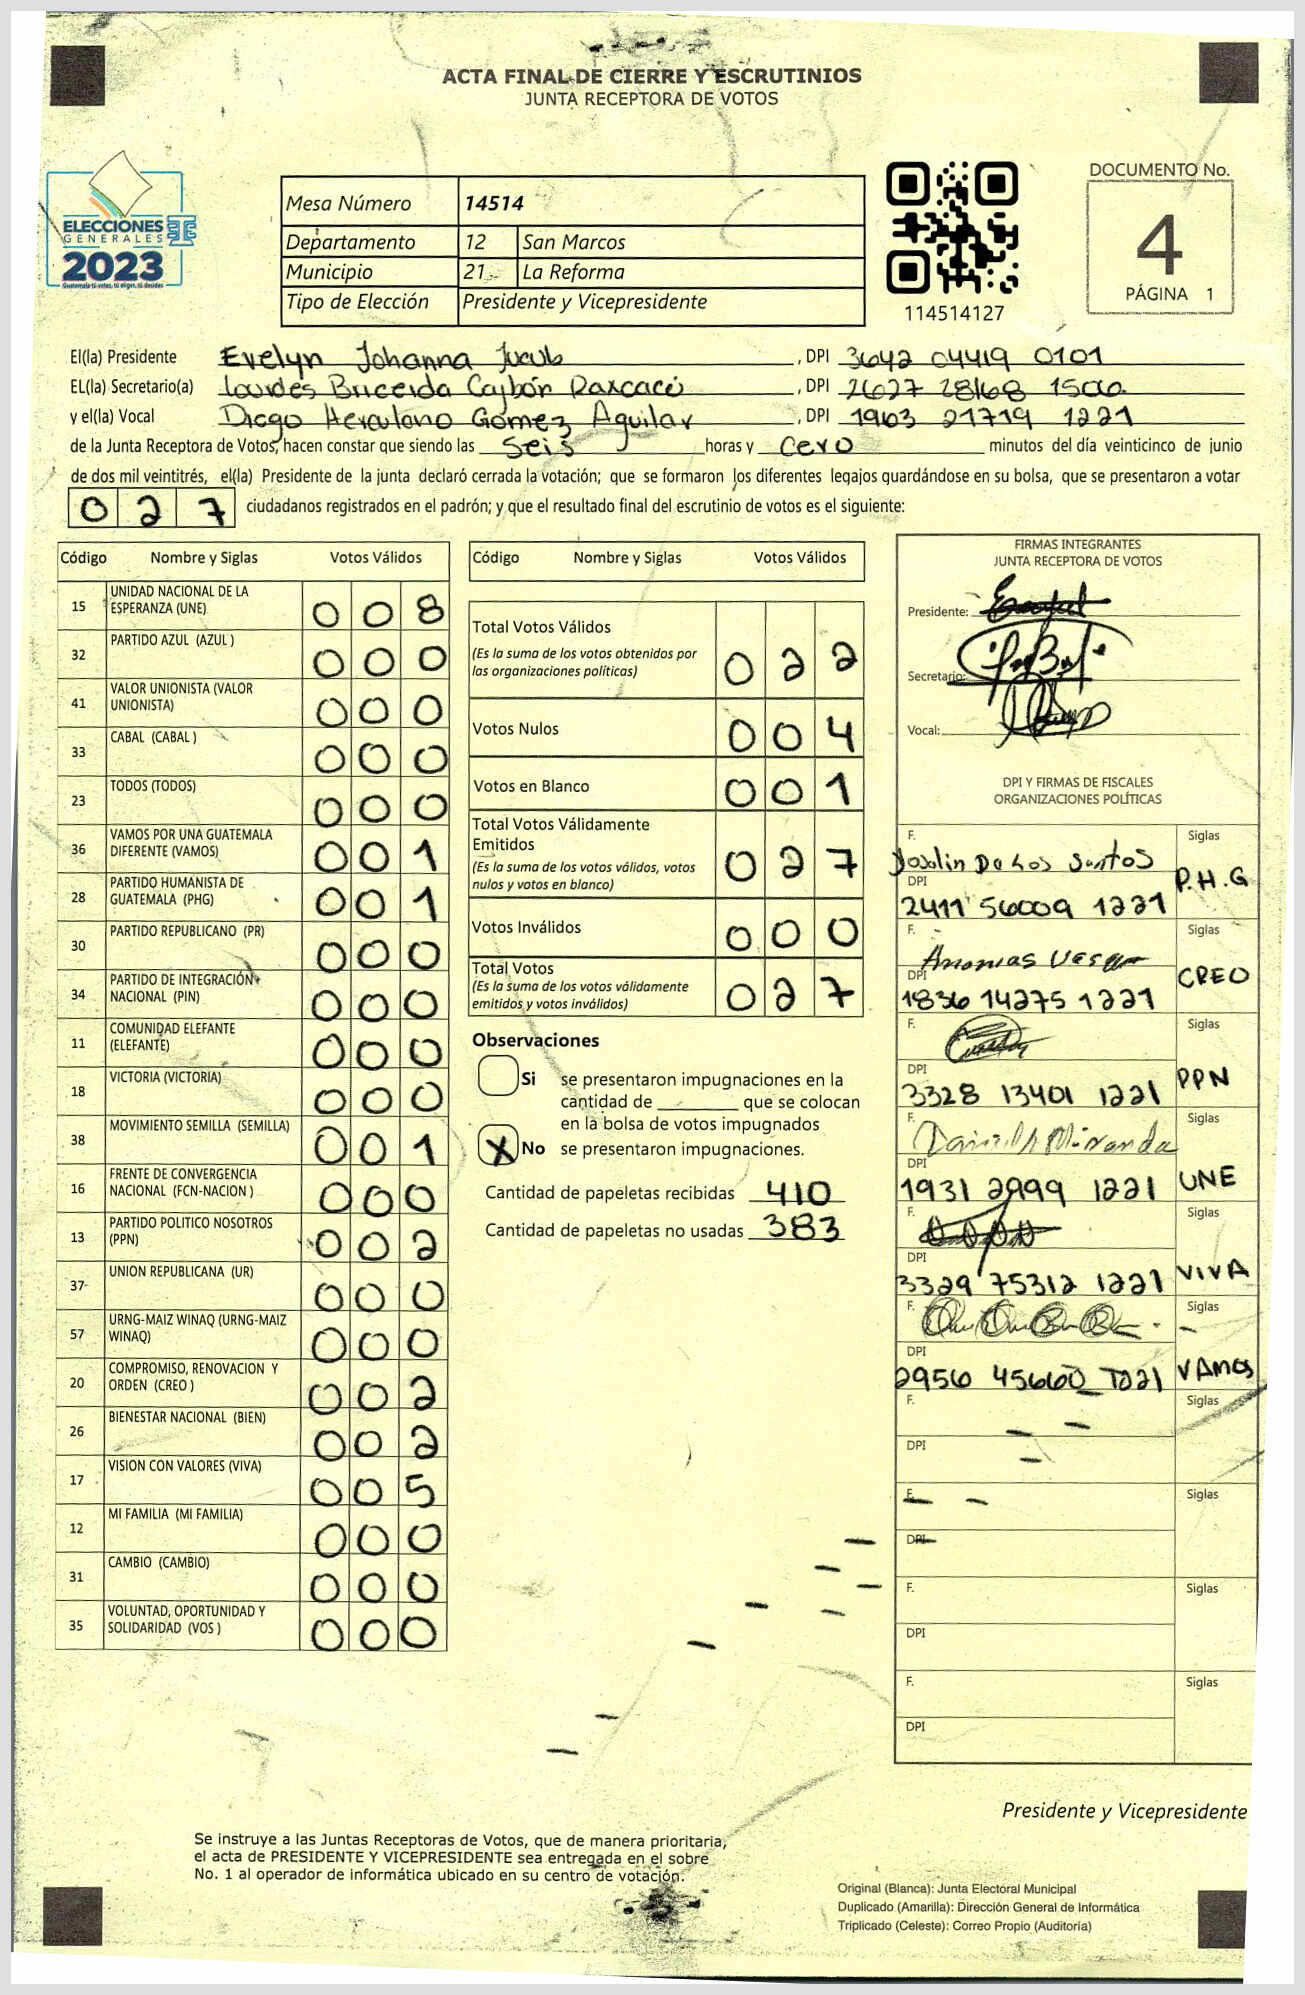 ACTA FINAL DE CIERRE Y ESCRUTINIOS
JUNTA RECEPTORA DE VOTOS
ELECCIONES
GENERALES
2023
Guatemala tú votas, tú eliges, tú decides
Mesa Número 14514
Departamento 12 San Marcos
Municipio 21 La Reforma
Tipo de Elección Presidente y Vicepresidente
114514127
DOCUMENTO No.
4
PÁGINA 1
El(la) Presidente Evelyn Johanna , DPI 3642 04419 0101
EL(la) Secretario(a) Lourdes Briceida Cajbón Raxcacó , DPI 2627 28168 1506
y el(la) Vocal Diego Herculano Gómez Aguilar , DPI 1963 21719 1221
de la Junta Receptora de Votos, hacen constar que siendo las Seis horas y Cero minutos del día veinticinco de junio
de dos mil veintitrés, el(la) Presidente de la junta declaró cerrada la votación; que se formaron los diferentes legajos guardándose en su bolsa, que se presentaron a votar
0 2 7 ciudadanos registrados en el padrón; y que el resultado final del escrutinio de votos es el siguiente:
Código Nombre y Siglas Votos Válidos
15 UNIDAD NACIONAL DE LA ESPERANZA (UNE) 0 0 8
32 PARTIDO AZUL (AZUL ) 0 0 0
41 VALOR UNIONISTA (VALOR UNIONISTA) 0 0 0
33 CABAL (CABAL ) 0 0 0
23 TODOS (TODOS) 0 0 0
36 VAMOS POR UNA GUATEMALA DIFERENTE (VAMOS) 0 0 1
28 PARTIDO HUMANISTA DE GUATEMALA (PHG) 0 0 1
30 PARTIDO REPUBLICANO (PR) 0 0 0
34 PARTIDO DE INTEGRACIÓN NACIONAL (PIN) 0 0 0
11 COMUNIDAD ELEFANTE (ELEFANTE) 0 0 0
18 VICTORIA (VICTORIA) 0 0 0
38 MOVIMIENTO SEMILLA (SEMILLA) 0 0 1
16 FRENTE DE CONVERGENCIA NACIONAL (FCN-NACION ) 0 0 0
13 PARTIDO POLITICO NOSOTROS (PPN) 0 0 2
37 UNION REPUBLICANA (UR) 0 0 0
57 URNG-MAIZ WINAQ (URNG-MAIZ WINAQ) 0 0 0
20 COMPROMISO, RENOVACION Y ORDEN (CREO ) 0 0 2
26 BIENESTAR NACIONAL (BIEN) 0 0 2
17 VISION CON VALORES (VIVA) 0 0 5
12 MI FAMILIA (MI FAMILIA) 0 0 0
31 CAMBIO (CAMBIO) 0 0 0
35 VOLUNTAD, OPORTUNIDAD Y SOLIDARIDAD (VOS ) 0 0 0
Código Nombre y Siglas Votos Válidos
Total Votos Válidos 0 2 2
(Es la suma de los votos obtenidos por
las organizaciones políticas)
Votos Nulos 0 0 4
Votos en Blanco 0 0 1
Total Votos Válidamente
Emitidos 0 2 7
(Es la suma de los votos válidos, votos
nulos y votos en blanco)
Votos Inválidos 0 0 0
Total Votos 0 2 7
(Es la suma de los votos válidamente
emitidos y votos inválidos)
Observaciones
Si se presentaron impugnaciones en la
cantidad de ________ que se colocan
en la bolsa de votos impugnados
X No se presentaron impugnaciones.
Cantidad de papeletas recibidas 410
Cantidad de papeletas no usadas 383
FIRMAS INTEGRANTES
JUNTA RECEPTORA DE VOTOS
Presidente:
Secretario:
Vocal:
DPI Y FIRMAS DE FISCALES
ORGANIZACIONES POLÍTICAS
F. De Los Santos Siglas P.H.G
DPI 2411 56009 1221
F. Ananias Siglas CREO
DPI 1836 14275 1221
F. Siglas PPN
DPI 3328 13401 1221
F. Miranda Siglas UNE
DPI 1931 2999 1221
F. Siglas VIVA
DPI 3329 75312 1221
F. Siglas VAMOS
DPI 2956 45660 1221
F. Siglas
DPI
F. Siglas
DPI
F. Siglas
DPI
F. Siglas
DPI
Presidente y Vicepresidente
Se instruye a las Juntas Receptoras de Votos, que de manera prioritaria,
el acta de PRESIDENTE Y VICEPRESIDENTE sea entregada en el sobre
No. 1 al operador de informática ubicado en su centro de votación.
Original (Blanca): Junta Electoral Municipal
Duplicado (Amarilla): Dirección General de Informática
Triplicado (Celeste): Correo Propio (Auditoria)